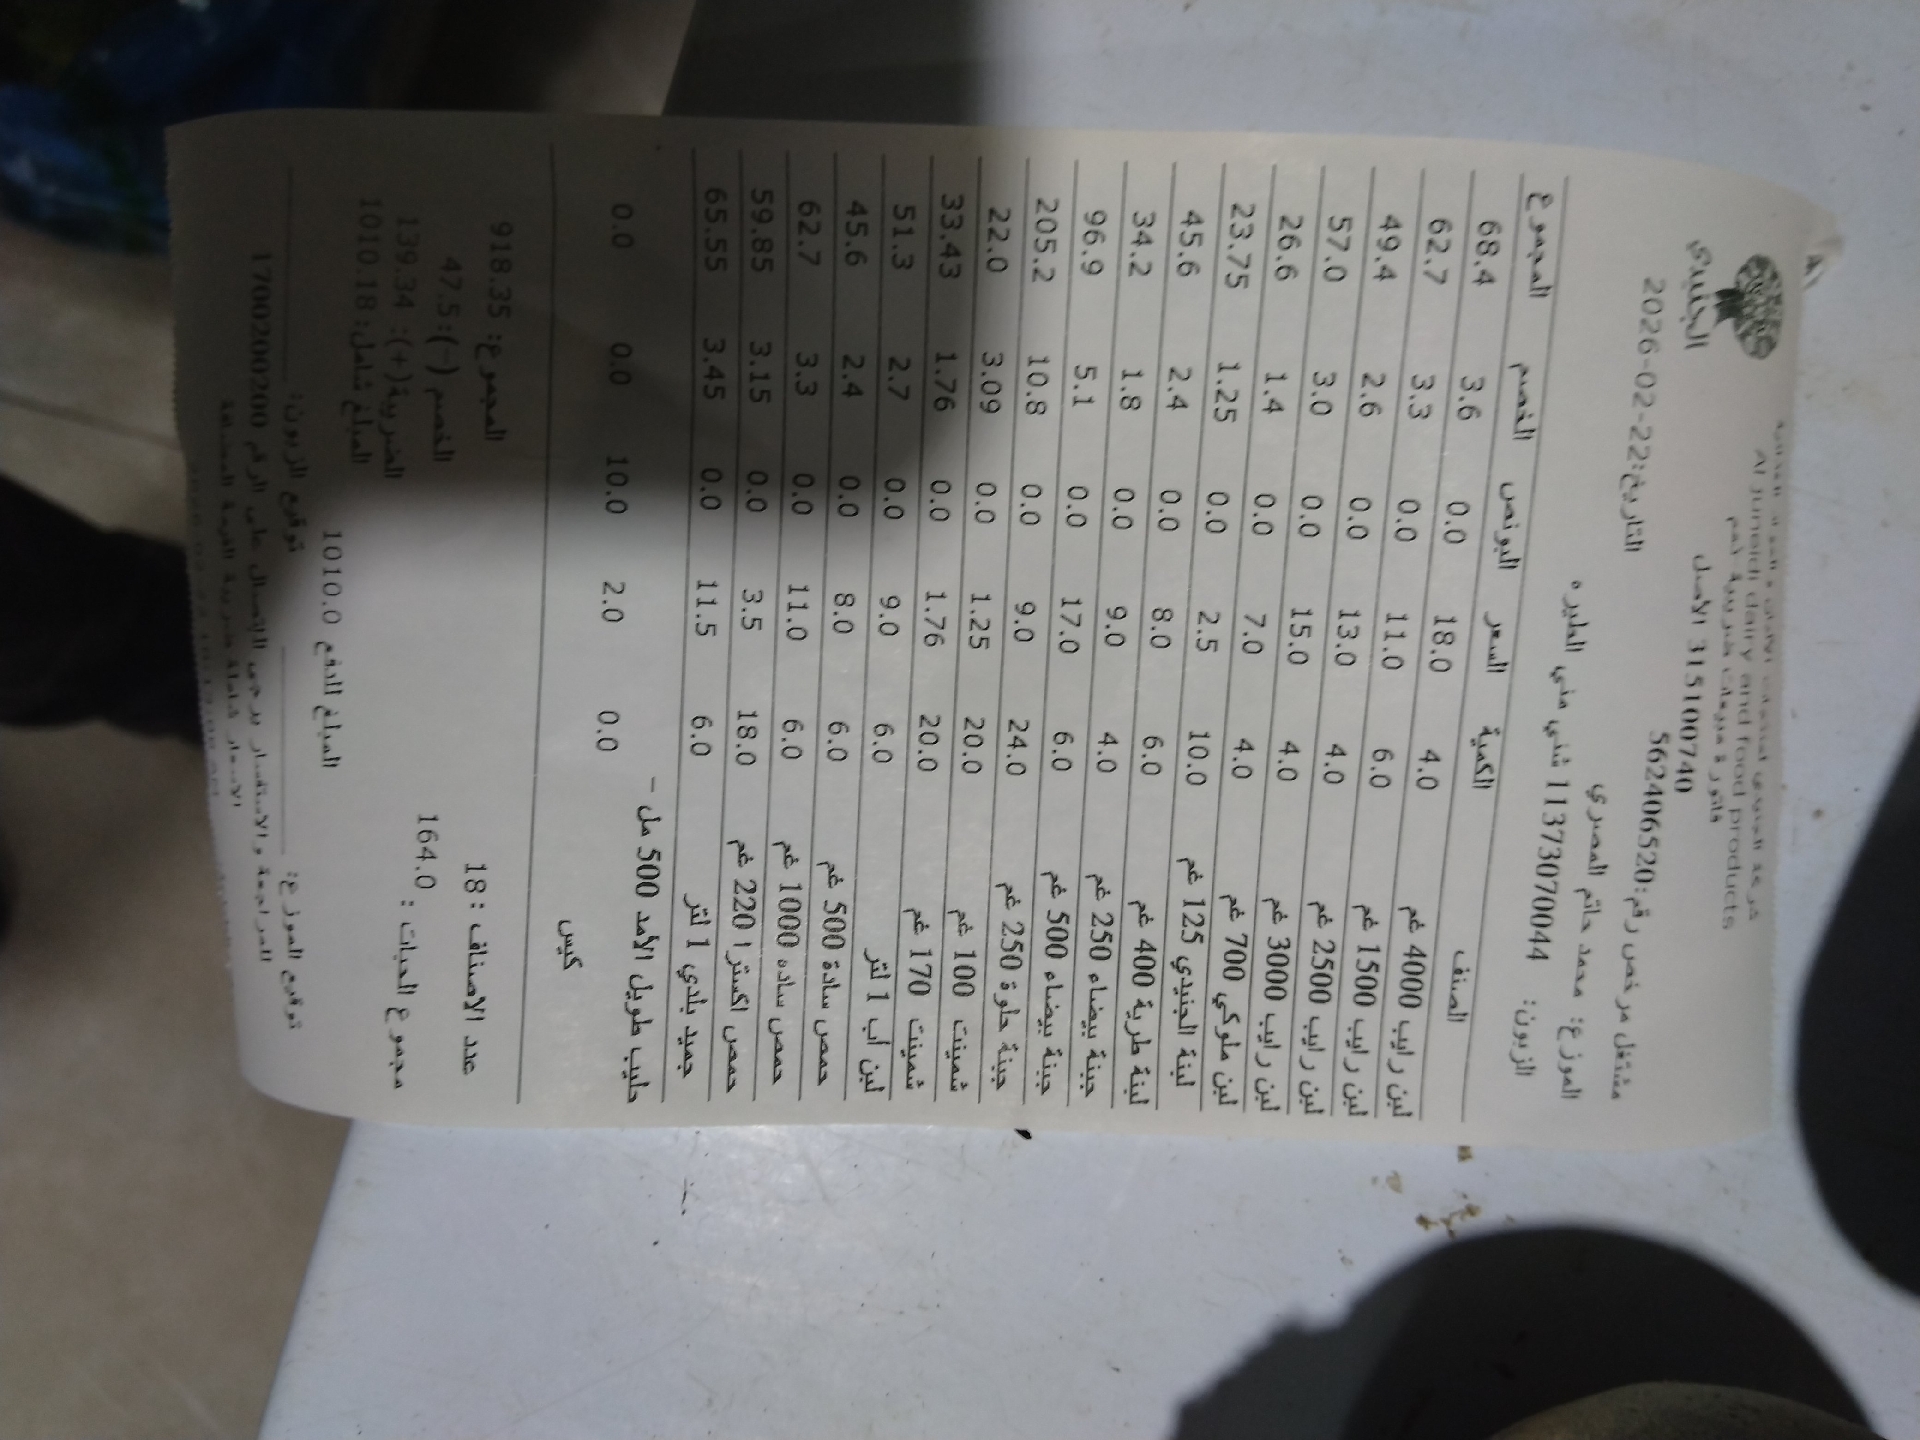 الجنيدي
Al Juneidi dairy and food products
فاتورة مبيعات ضريبية رقم
315100740 الاصل
مشتغل مرخص رقم:562406520
التاريخ:22-02-2026
الموزع: محمد حاتم المصري
الزبون: 11373070044 شني مني الطيره
الصنف الكمية السعر البونص الخصم المجموع
لبن رايب 4000 غم 4.0 18.0 0.0 3.6 68.4
لبن رايب 1500 غم 6.0 11.0 0.0 3.3 62.7
لبن رايب 2500 غم 4.0 13.0 0.0 2.6 49.4
لبن رايب 3000 غم 4.0 15.0 0.0 3.0 57.0
لبن ملوكي 700 غم 4.0 7.0 0.0 1.4 26.6
لبنة الجنيدي 125 غم 10.0 2.5 0.0 1.25 23.75
لبنة طرية 400 غم 6.0 8.0 0.0 2.4 45.6
جبنة بيضاء 250 غم 4.0 9.0 0.0 1.8 34.2
جبنة بيضاء 500 غم 6.0 17.0 0.0 5.1 96.9
جبنة حلوة 250 غم 24.0 9.0 0.0 10.8 205.2
شمينت 100 غم 20.0 1.25 0.0 3.09 22.0
شمينت 170 غم 20.0 1.76 0.0 1.76 33.43
لبن أب 1 لتر 6.0 9.0 0.0 2.7 51.3
حمص سادة 500 غم 6.0 8.0 0.0 2.4 45.6
حمص ساده 1000 غم 6.0 11.0 0.0 3.3 62.7
حمص اكسترا 220 غم 18.0 3.5 0.0 3.15 59.85
جميد بلدي 1 لتر 6.0 11.5 0.0 3.45 65.55
حليب طويل الأمد 500 مل - 0.0 2.0 10.0 0.0 0.0
كيس
عدد الاصناف : 18 المجموع: 918.35
الخصم (-):47.5
مجموع الحبات : 164.0 الضريبة(+): 139.34
المبلغ شامل: 1010.18
المبلغ للدفع 1010.0
توقيع الموزع: توقيع الزبون:
للمراجعة والاستفسار يرجى الاتصال على الرقم 1700200200
الاسعار شاملة ضريبة القيمة المضافة